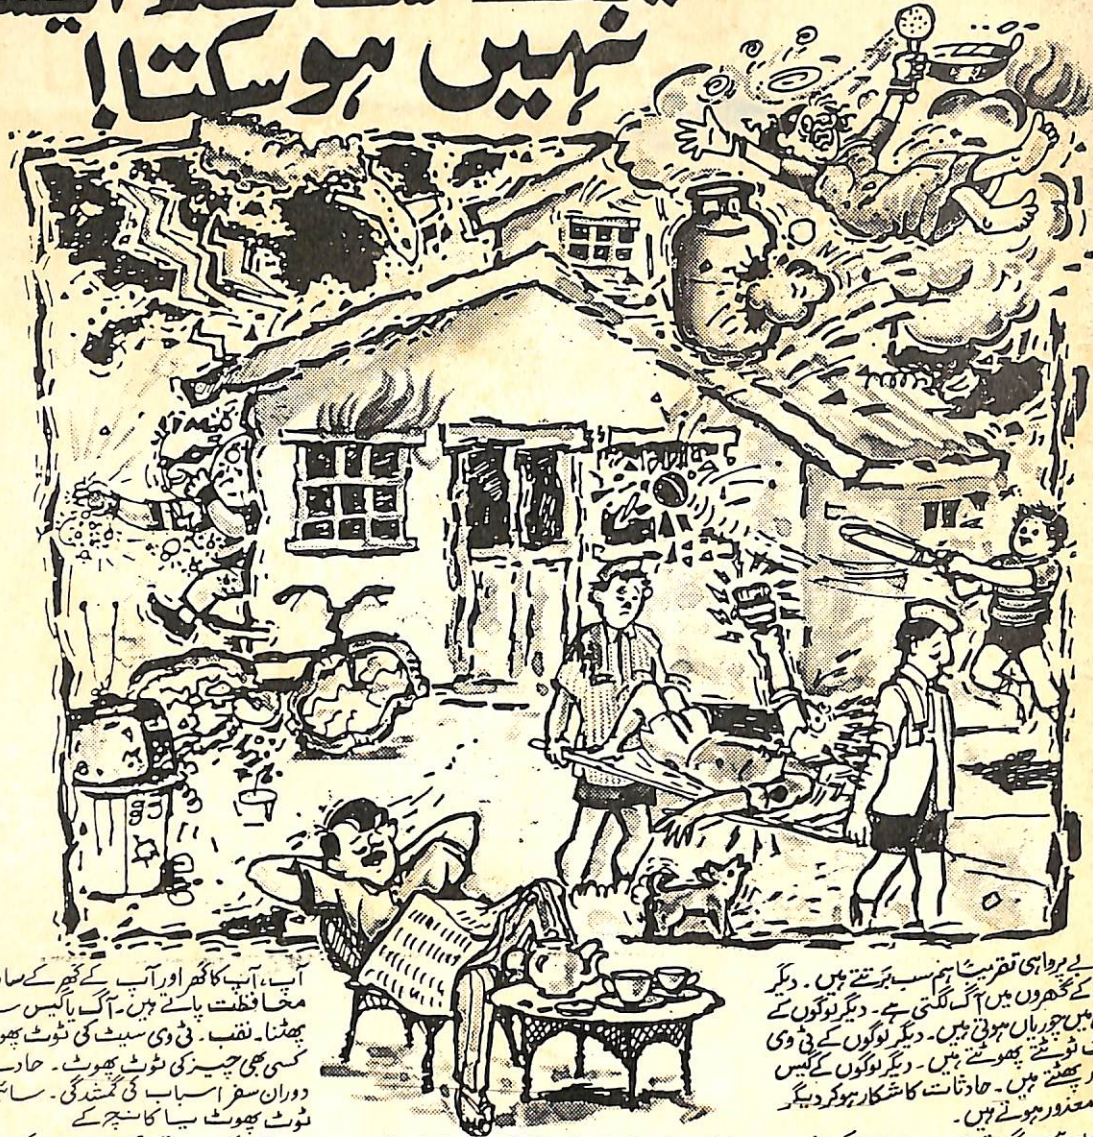 نہیں ہوسکتا!
بے پرواہی تقریباً ہم سب برتتے ہیں۔ دیگر
کے گھروں میں آگ لگتی ہے۔ دیگر لوگوں کے
میں چوریاں ہوتی ہیں۔ دیگر لوگوں کے ٹی وی
ٹوٹتے پھوٹتے ہیں۔ دیگر لوگوں کے گیس
پھٹتے ہیں۔ حادثات کا شکار ہوکر دیگر
معذور ہوتے ہیں۔
آپ، آپ کا گھر اور آپ کے گھر کے
محافظت پاتے ہیں۔ آگ یا گیس
پھٹنا۔ نقب۔ ٹی وی سیٹ کی ٹوٹ
کسی بھی چیز کی ٹوٹ پھوٹ۔
دوران سفر اسباب کی گمشدگی۔
ٹوٹ پھوٹ یا کانچ کے